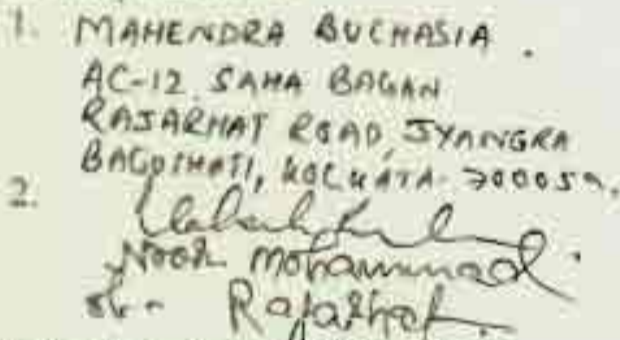 1. MAHENDRA BUCHASIA.
AC-12 SAHA BAGAN
RAJARHAT ROAD, JYANGRA
BAGUIHATI, KOLKATA-700059.
2.
Noor Mohammad
Rajarhat